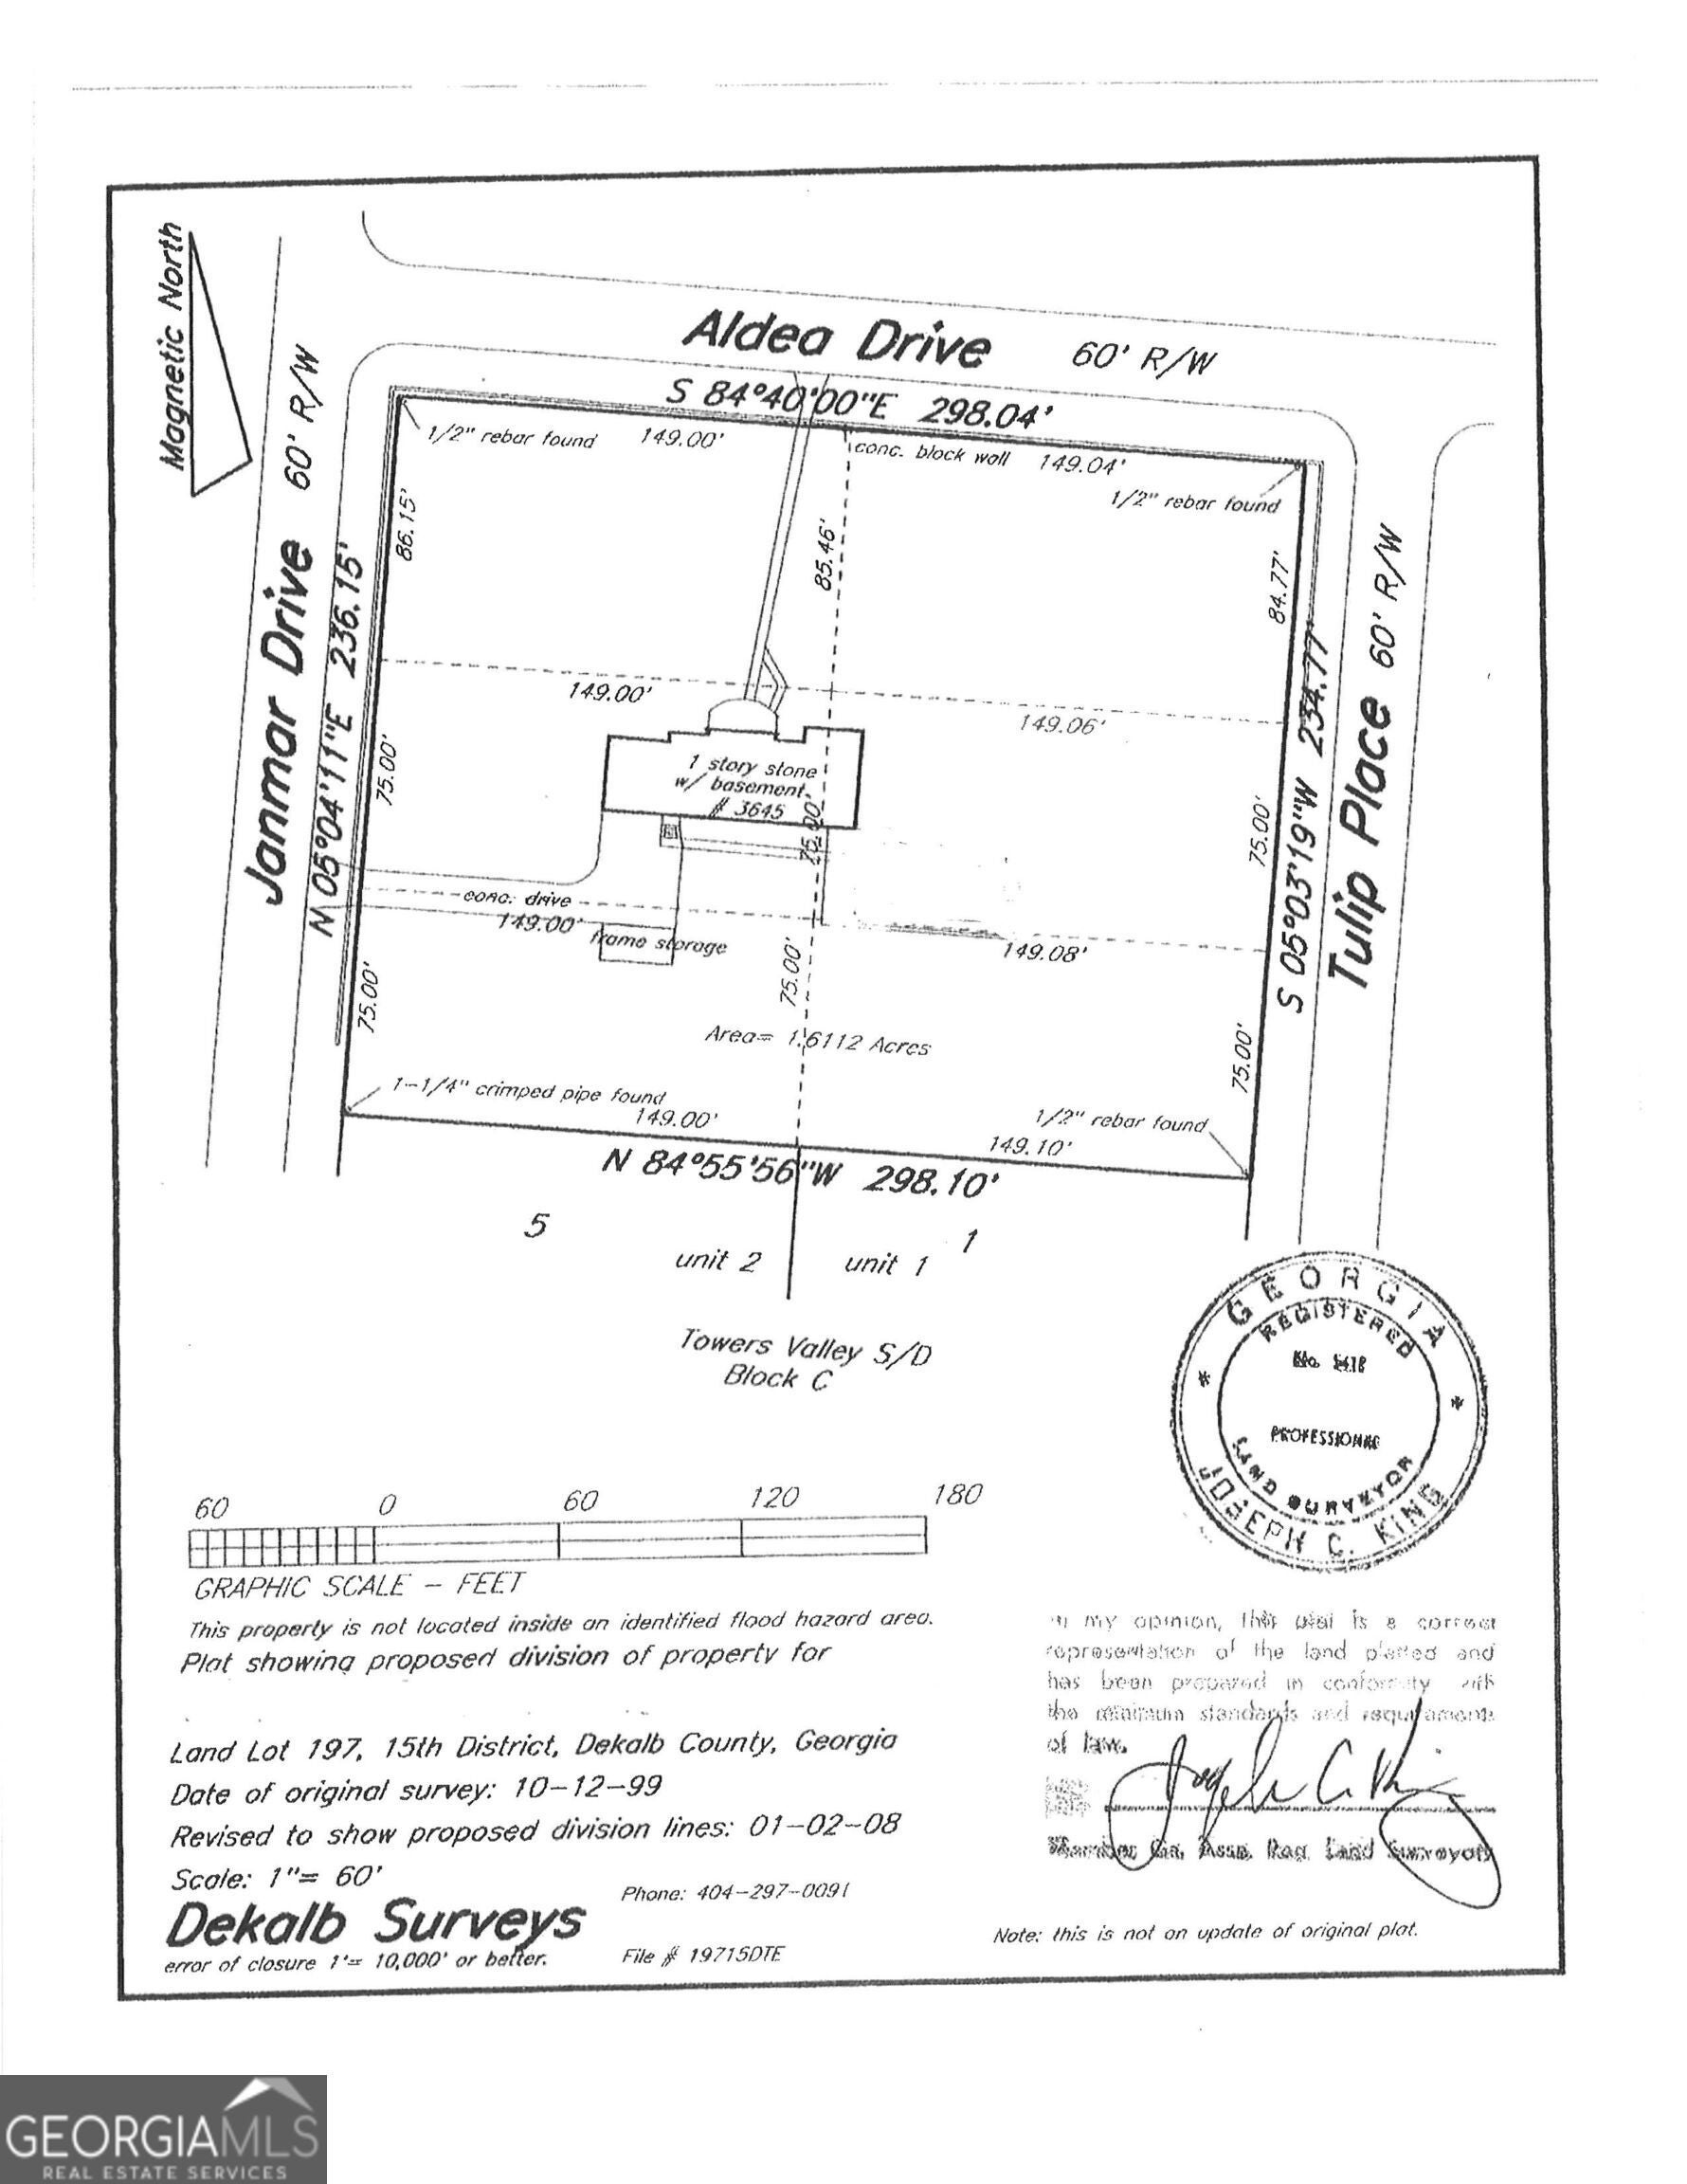 Magnetic North
Aldea Drive 60' R/W
S 84°40'00"E 298.04'
1/2" rebar found 149.00'
conc. block wall 149.04'
1/2" rebar found
Janmar Drive 60' R/W
N 05°04'11"E 236.15'
86.15'
85.46'
84.77'
Tulip Place 60' R/W
S 05°03'19"W 234.77'
149.00'
149.06'
75.00'
1 story stone
w/ basement
# 3645
75.00'
75.00'
conc. drive
149.00'
frame storage
149.08'
75.00'
75.00'
75.00'
Area= 1.6112 Acres
1-1/4" crimped pipe found
149.00'
1/2" rebar found
149.10'
N 84°55'56"W 298.10'
5
1
unit 2
unit 1
Towers Valley S/D
Block C
GEORGIA
REGISTERED
No.
PROFESSIONAL
LAND SURVEYOR
JOSEPH C. KING
60 0 60 120 180
GRAPHIC SCALE - FEET
This property is not located inside an identified flood hazard area.
Plat showing proposed division of property for
In my opinion, this plat is a correct
representation of the land platted and
has been prepared in conformity with
the minimum standards and requirements
of law.
Land Lot 197, 15th District, Dekalb County, Georgia
Date of original survey: 10-12-99
Revised to show proposed division lines: 01-02-08
Scale: 1"= 60'
Joseph C. King
Member, Ga. Assn. Reg. Land Surveyors
Phone: 404-297-0091
Dekalb Surveys
error of closure 1'= 10,000' or better.
File # 19715DTE
Note: this is not an update of original plat.
GEORGIAMLS
REAL ESTATE SERVICES